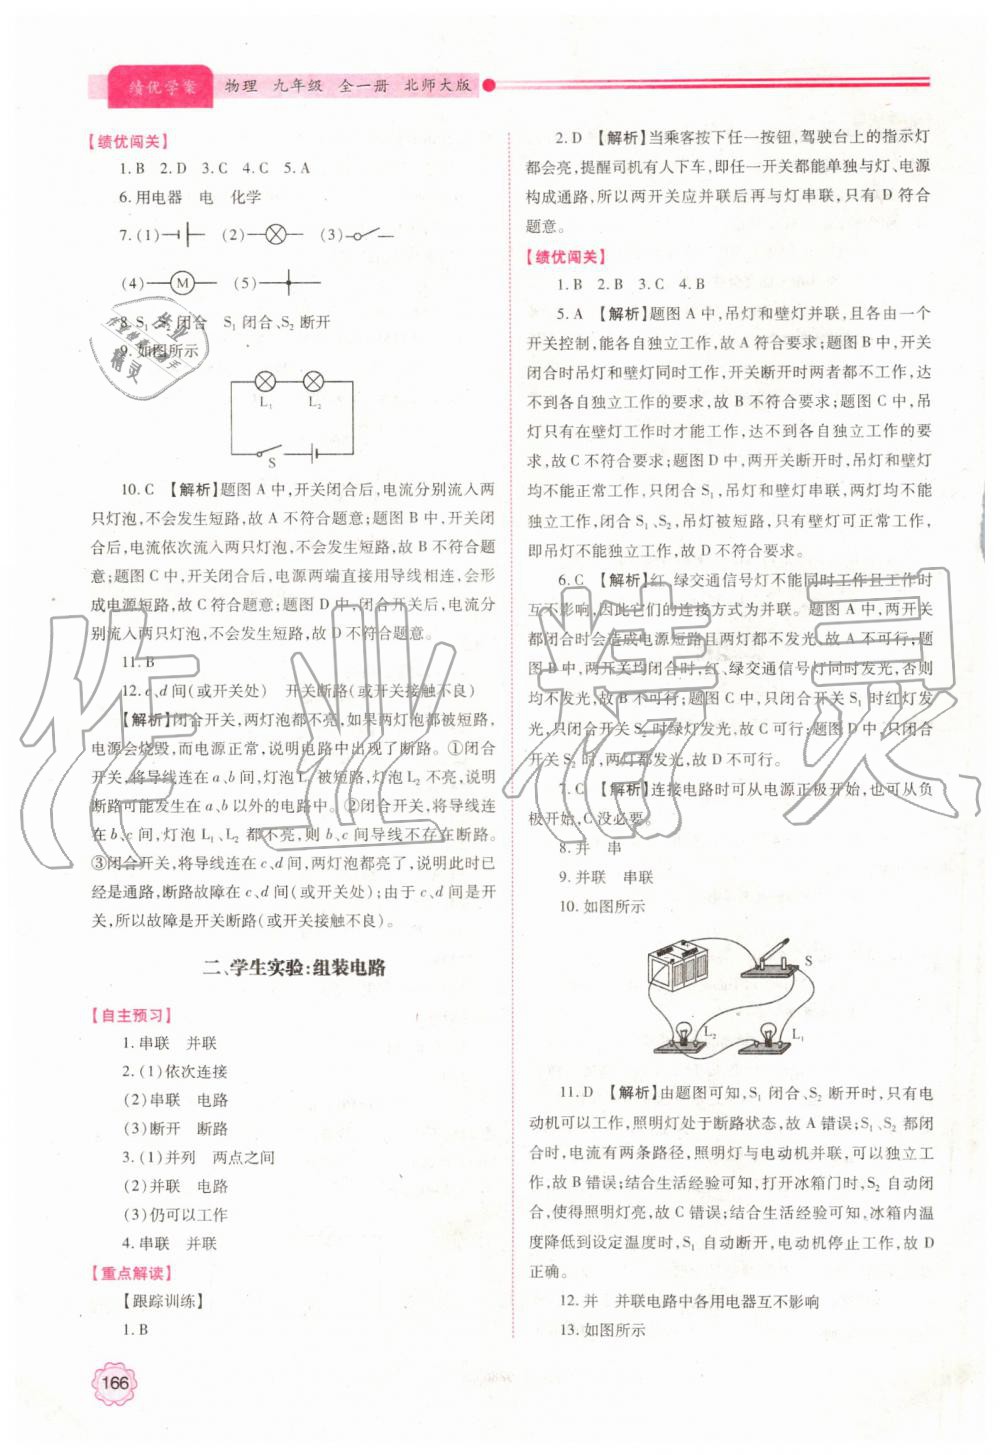 绩优学案 物理 九年级 全一册 北师大版
【绩优闯关】
1.B 2.D 3.C 4.C 5.A
6.用电器 电 化学
7.(1) (2) (3)
(4) M (5)
8.S₁ 闭合 S₁ 闭合、S₂ 断开
9.如图所示
L₁ L₂
S
10.C 【解析】题图 A 中,开关闭合后,电流分别流入两
只灯泡,不会发生短路,故 A 不符合题意;题图 B 中,开关闭
合后,电流依次流入两只灯泡,不会发生短路,故 B 不符合题
意;题图 C 中,开关闭合后,电源两端直接用导线相连,会形
成电源短路,故 C 符合题意;题图 D 中,闭合开关后,电流分
别流入两只灯泡,不会发生短路,故 D 不符合题意。
11.B
12.c、d 间(或开关处) 开关断路(或开关接触不良)
【解析】闭合开关,两灯泡都不亮,如果两灯泡都被短路,
电源会烧毁,而电源正常,说明电路中出现了断路。①闭合
开关,将导线连在 a、b 间,灯泡 L 被短路,灯泡 L 不亮,说明
断路可能发生在 a、b 以外的电路中。②闭合开关,将导线连
在 b、c 间,灯泡 L₁、L₂ 都不亮,则 b、c 间导线不存在断路。
③闭合开关,将导线连在 c、d 间,两灯泡都亮了,说明此时已
经是通路,断路故障在 c、d 间(或开关处);由于 c、d 间是开
关,所以故障是开关断路(或开关接触不良)。
二、学生实验:组装电路
【自主预习】
1.串联 并联
2.(1)依次连接
(2)串联 电路
(3)断开 断路
3.(1)并列 两点之间
(2)并联 电路
(3)仍可以工作
4.串联 并联
【重点解读】
【跟踪训练】
1.B
2.D 【解析】当乘客按下任一按钮,驾驶台上的指示灯
都会亮,提醒司机有人下车,即任一开关都能单独与灯、电源
构成通路,所以两开关应并联后再与灯串联,只有 D 符合
题意。
【绩优闯关】
1.B 2.B 3.C 4.B
5.A 【解析】题图 A 中,吊灯和壁灯并联,且各由一个
开关控制,能各自独立工作,故 A 符合要求;题图 B 中,开关
闭合时吊灯和壁灯同时工作,开关断开时两者都不工作,达
不到各自独立工作的要求,故 B 不符合要求;题图 C 中,吊
灯只有在壁灯工作时才能工作,达不到各自独立工作的要
求,故 C 不符合要求;题图 D 中,两开关断开时,吊灯和壁灯
均不能正常工作,只闭合 S₁,吊灯和壁灯串联,两灯均不能
独立工作,闭合 S₁、S₂,吊灯被短路,只有壁灯可正常工作,
即吊灯不能独立工作,故 D 不符合要求。
6.C 【解析】红、绿交通信号灯不能同时工作且工作时
互不影响,因此它们的连接方式为并联。题图 A 中,两开关
都闭合时会造成电源短路且两灯都不发光,故 A 不可行;题
图 B 中,两开关均闭合时,红、绿交通信号灯同时发光,否则
均不发光,故 B 不可行;题图 C 中,只闭合开关 S₁ 时红灯发
光,只闭合开关 S₂ 时绿灯发光,故 C 可行;题图 D 中,只闭合
开关 S₂ 时,两灯都发光,故 D 不可行。
7.C 【解析】连接电路时可从电源正极开始,也可从负
极开始,C 没必要。
8.并 串
9.并联 串联
10.如图所示
S
L₂ L₁
11.D 【解析】由题图可知,S₁ 闭合、S₂ 断开时,只有电
动机可以工作,照明灯处于断路状态,故 A 错误;S₁、S₂ 都闭
合时,电流有两条路径,照明灯与电动机并联,可以独立工
作,故 B 错误;结合生活经验可知,打开冰箱门时,S₂ 自动闭
合,使得照明灯亮,故 C 错误;结合生活经验可知,冰箱内温
度降低到设定温度时,S₁ 自动断开,电动机停止工作,故 D
正确。
12.并 并联电路中各用电器互不影响
13.如图所示
166
作业精灵